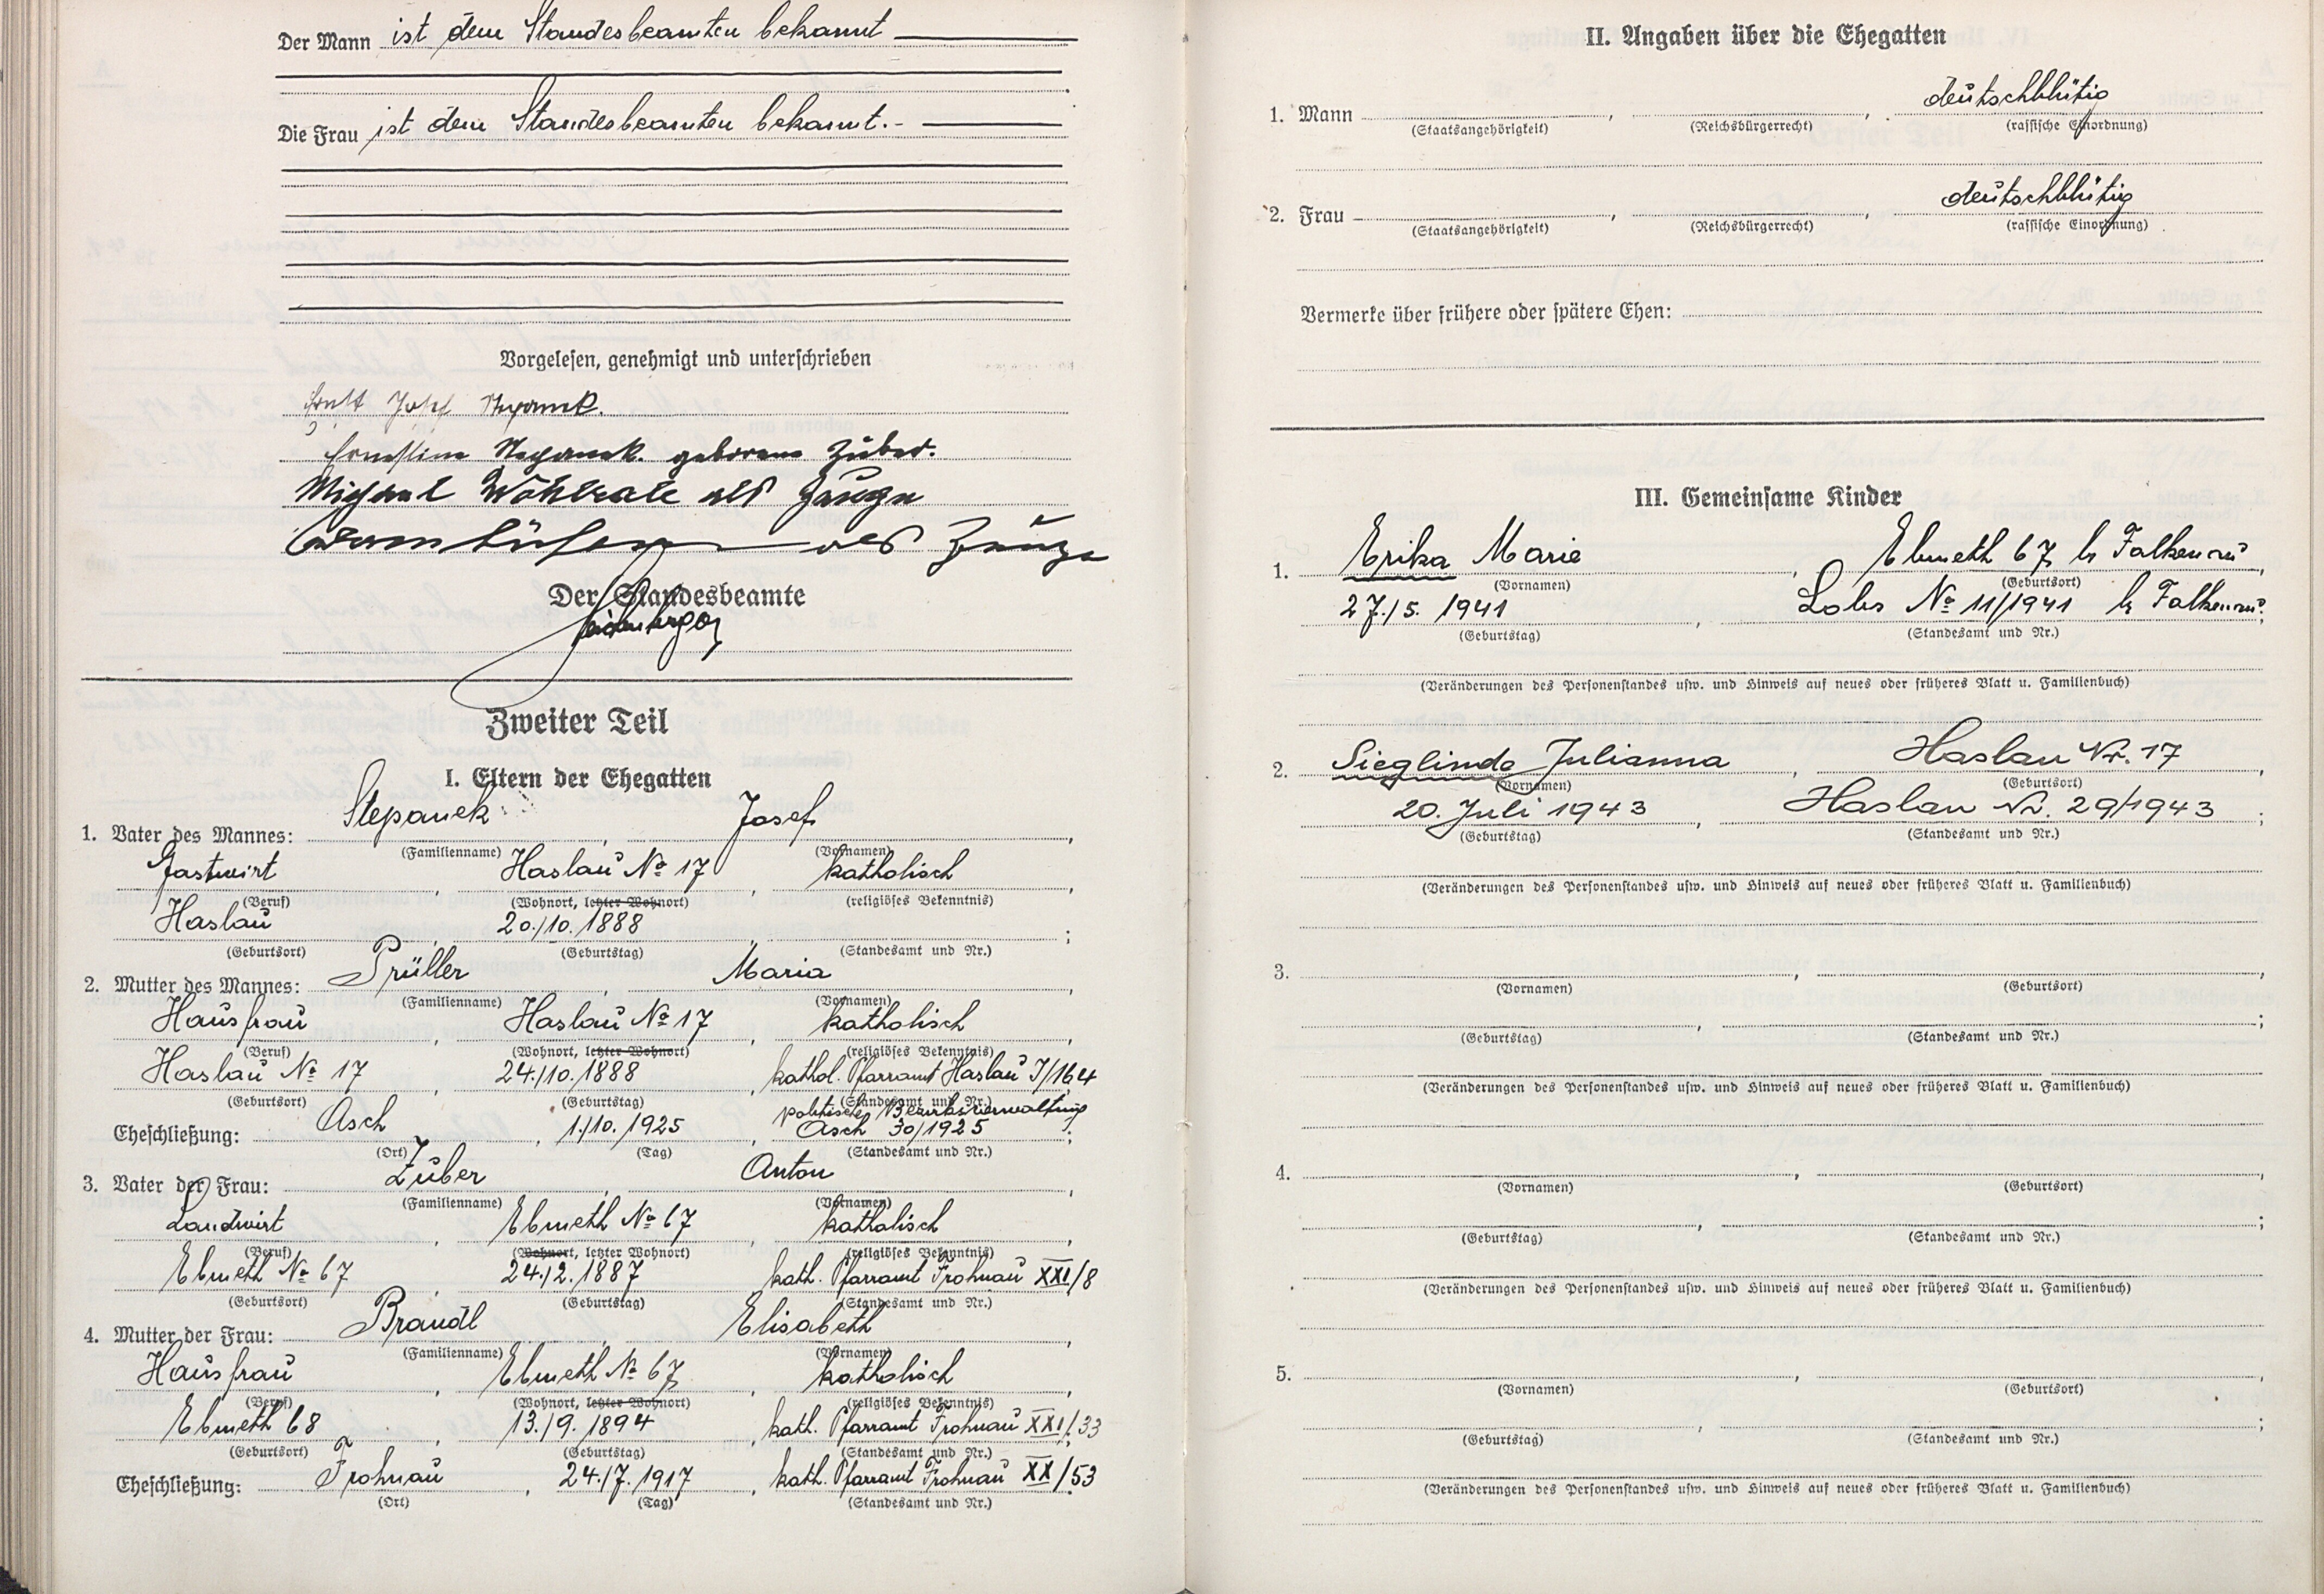 Der Mann ist dem Standesbeamten bekannt
Die Frau ist dem Standesbeamten bekannt.-
Vorgelesen, genehmigt und unterschrieben
Ernst Josef Stepanek.
Ernestine Stepanek. geborene Zuber.
als Zeuge
als Zeuge
Der Standesbeamte
Zweiter Teil
I. Eltern der Ehegatten
1. Vater des Mannes: Stepanek, Josef,
(Familienname) (Vornamen)
Gastwirt, Haslau No 17, katholisch,
(Beruf) (Wohnort, letzter Wohnort) (religiöses Bekenntnis)
Haslau, 20./10. 1888, ;
(Geburtsort) (Geburtstag) (Standesamt und Nr.)
2. Mutter des Mannes: Prüller, Maria,
(Familienname) (Vornamen)
Hausfrau, Haslau No 17, katholisch,
(Beruf) (Wohnort, letzter Wohnort) (religiöses Bekenntnis)
Haslau No 17, 24./10. 1888, kathol. Pfarramt Haslau I/164
(Geburtsort) (Geburtstag) (Standesamt und Nr.)
politische Bezirksverwaltung
Eheschließung: Asch, 1./10. 1925, Asch 30/1925;
(Ort) (Tag) (Standesamt und Nr.)
3. Vater der Frau: Zuber, Anton,
(Familienname) (Vornamen)
Landwirt, Ebmeth No 67, katholisch,
(Beruf) (Wohnort, letzter Wohnort) (religiöses Bekenntnis)
Ebmeth No 67, 24./2. 1887, kath. Pfarramt Frohnau XXI/8
(Geburtsort) (Geburtstag) (Standesamt und Nr.)
4. Mutter der Frau: Brandl, Elisabeth,
(Familienname) (Vornamen)
Hausfrau, Ebmeth No 67, katholisch,
(Beruf) (Wohnort, letzter Wohnort) (religiöses Bekenntnis)
Ebmeth 68, 13./9. 1894, kath. Pfarramt Frohnau XXI/33
(Geburtsort) (Geburtstag) (Standesamt und Nr.)
Eheschließung: Frohnau, 24./7. 1917, kath. Pfarramt Frohnau XX/53
(Ort) (Tag) (Standesamt und Nr.)
II. Angaben über die Ehegatten
1. Mann , , deutschblütig
(Staatsangehörigkeit) (Reichsbürgerrecht) (rassische Einordnung)
2. Frau , , deutschblütig
(Staatsangehörigkeit) (Reichsbürgerrecht) (rassische Einordnung)
Vermerke über frühere oder spätere Ehen:
III. Gemeinsame Kinder
1. Erika Marie, Ebmeth 67 b. Falkenau,
(Vornamen) (Geburtsort)
27./5. 1941, Lobs No 11/1941 b. Falkenau;
(Geburtstag) (Standesamt und Nr.)
(Veränderungen des Personenstandes usw. und Hinweis auf neues oder früheres Blatt u. Familienbuch)
2. Sieglinde Julianna, Haslau Nr. 17,
(Vornamen) (Geburtsort)
20. Juli 1943, Haslau Nr. 29/1943;
(Geburtstag) (Standesamt und Nr.)
(Veränderungen des Personenstandes usw. und Hinweis auf neues oder früheres Blatt u. Familienbuch)
3. , ,
(Vornamen) (Geburtsort)
, ;
(Geburtstag) (Standesamt und Nr.)
(Veränderungen des Personenstandes usw. und Hinweis auf neues oder früheres Blatt u. Familienbuch)
4. , ,
(Vornamen) (Geburtsort)
, ;
(Geburtstag) (Standesamt und Nr.)
(Veränderungen des Personenstandes usw. und Hinweis auf neues oder früheres Blatt u. Familienbuch)
5. , ,
(Vornamen) (Geburtsort)
, ;
(Geburtstag) (Standesamt und Nr.)
(Veränderungen des Personenstandes usw. und Hinweis auf neues oder früheres Blatt u. Familienbuch)